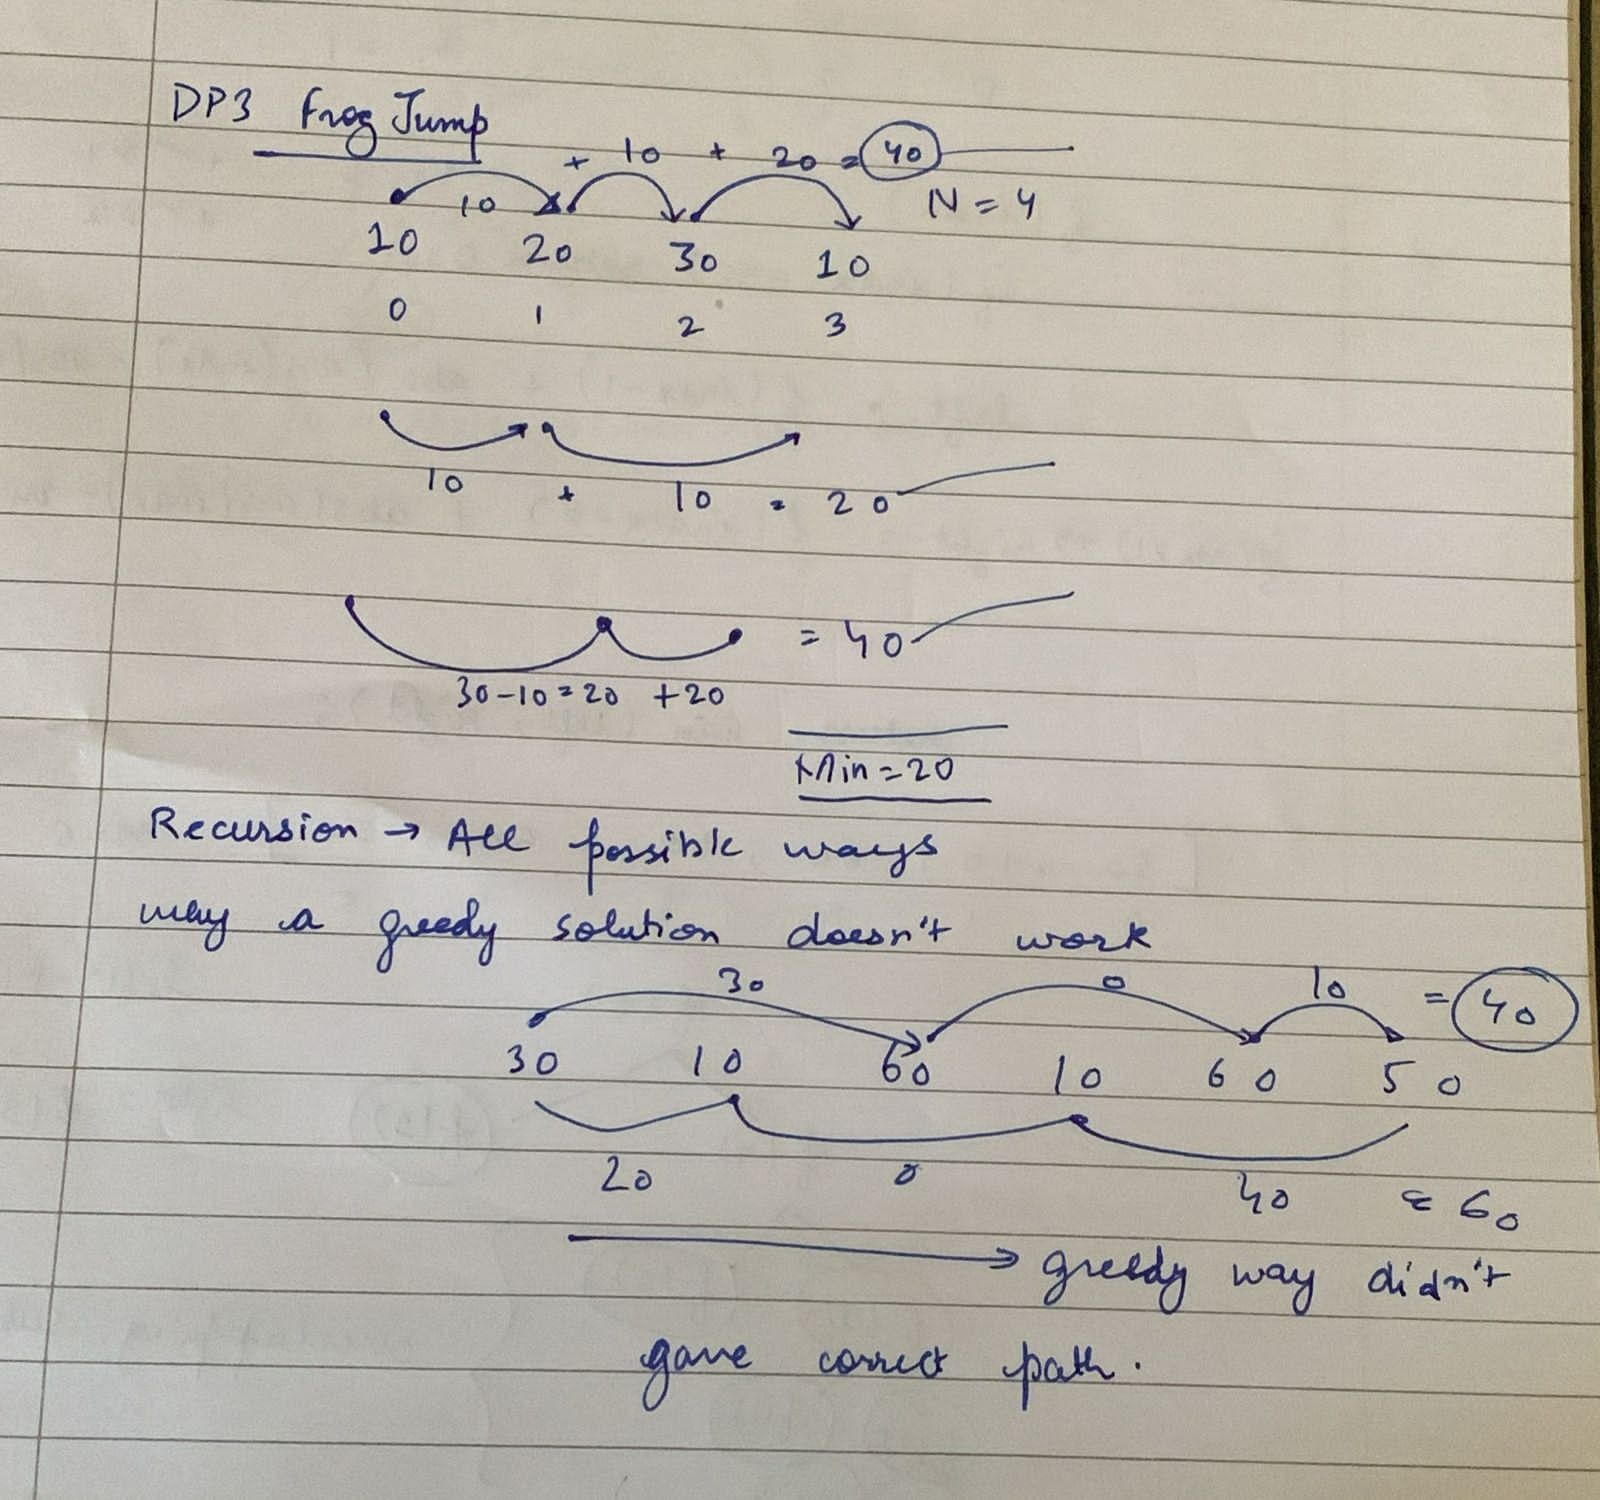 DP3 Frog Jump
+ 10 + 20 = 40
10
N = 4
10 20 30 10
0 1 2 3
10 + 10 = 20
= 40
30-10=20 +20
Min=20
Recursion → All possible ways
way a greedy solution doesn't work
30 0 10 = 40
30 10 60 10 60 50
20 0 40 = 60
→ greedy way didn't
gave correct path.